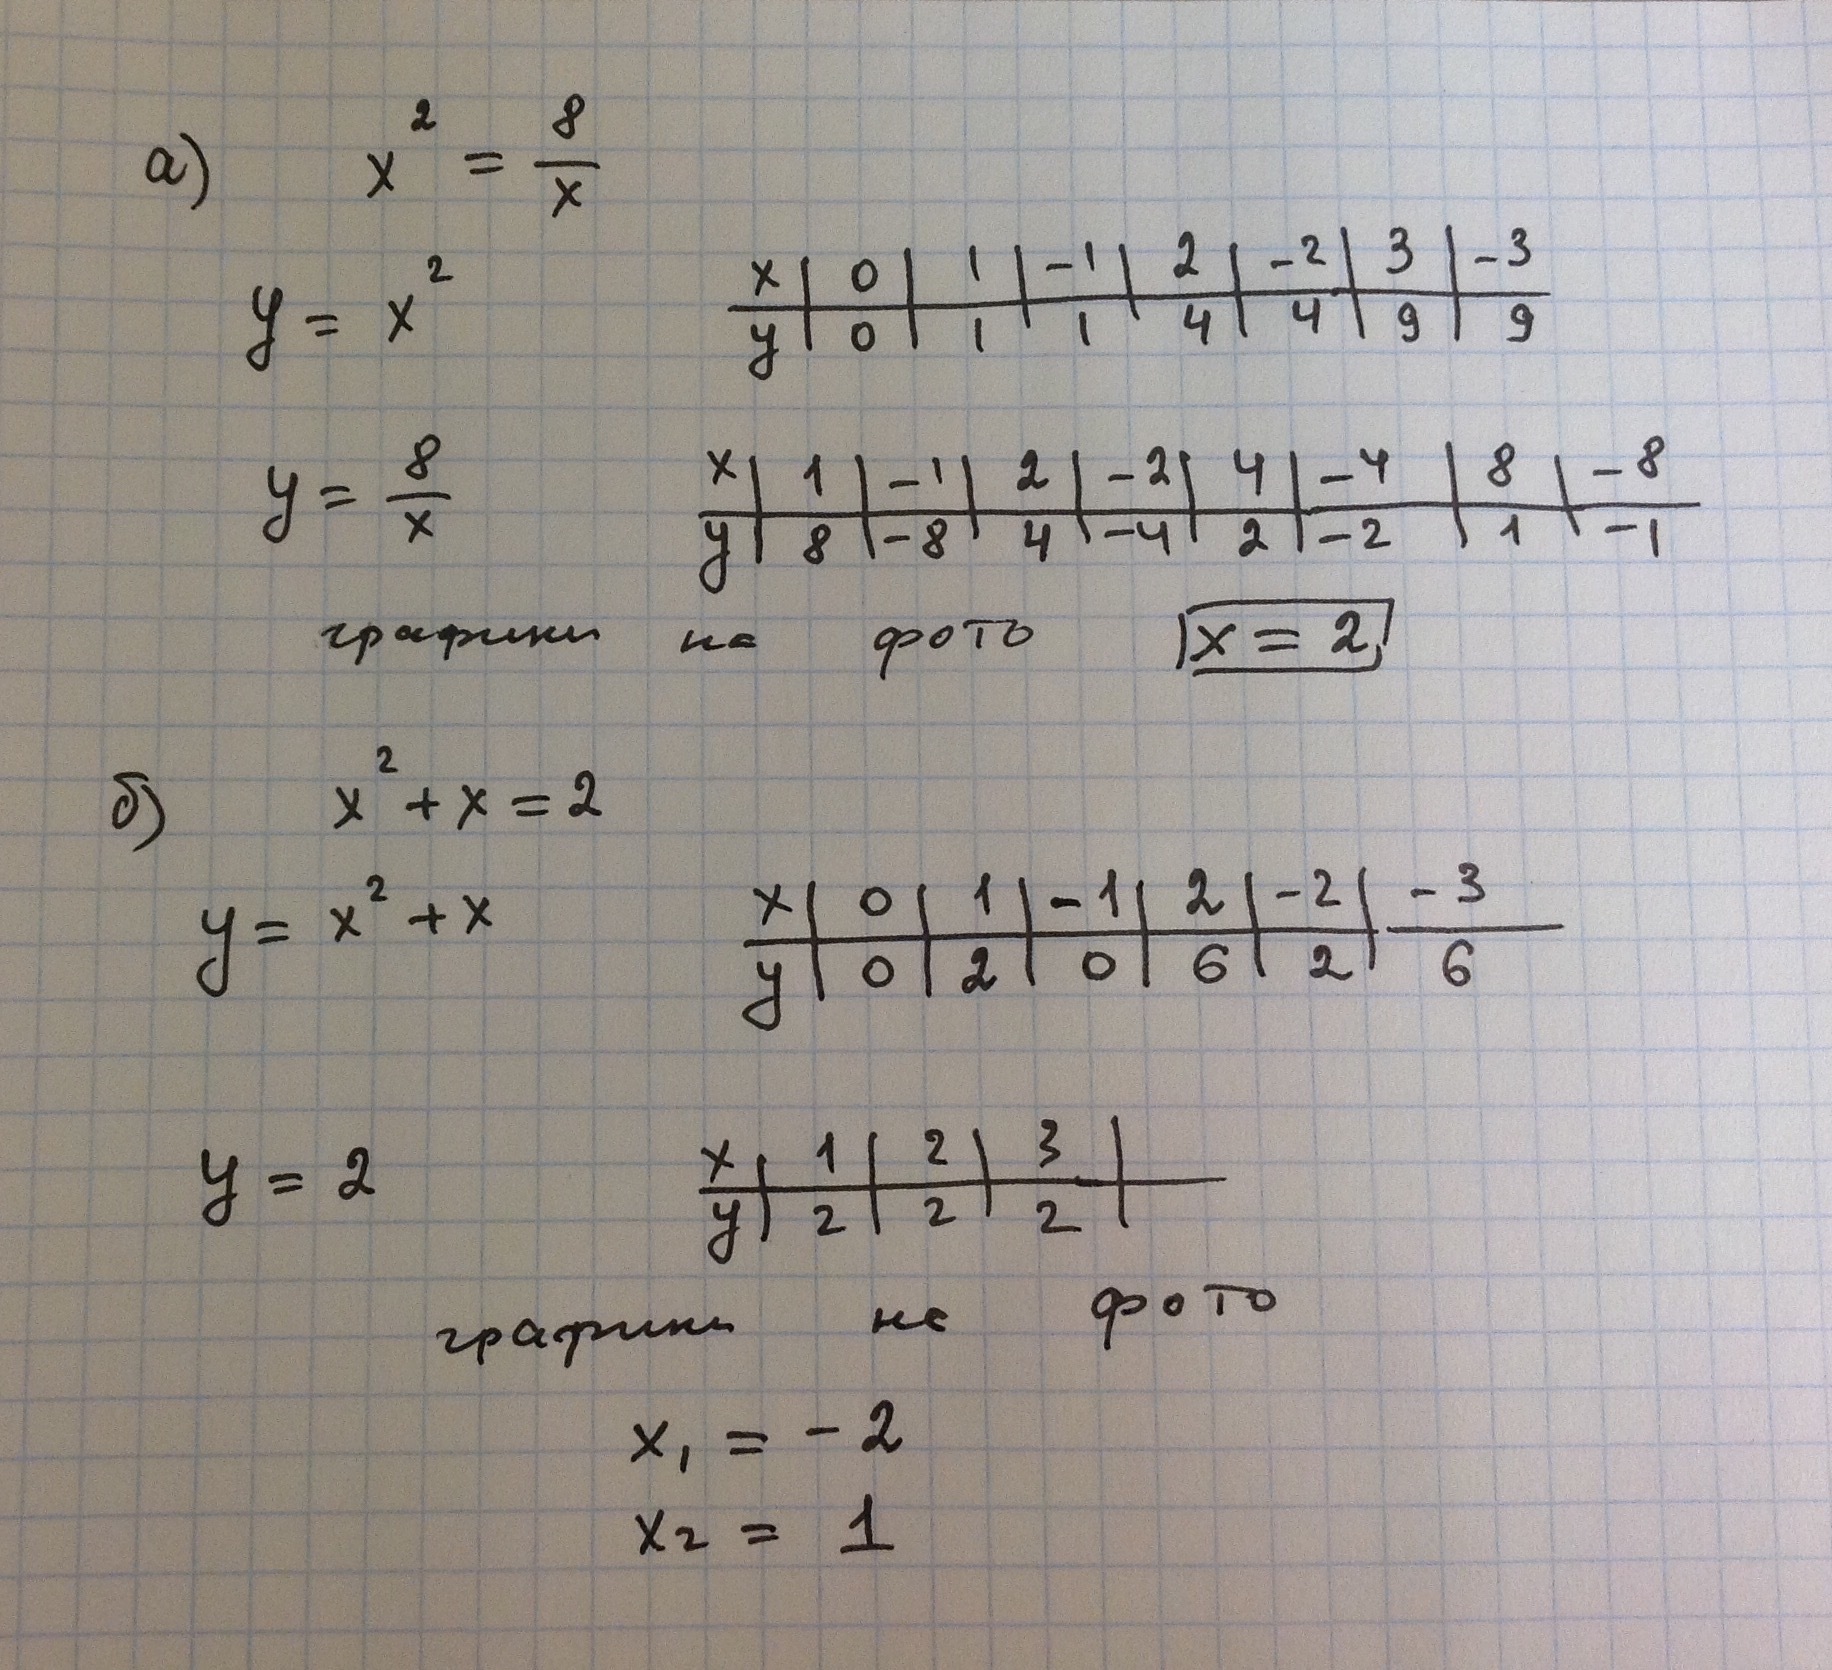 а) x² = 8/x
y = x²
x | 0 | 1 | -1 | 2 | -2 | 3 | -3
y | 0 | 1 | 1 | 4 | 4 | 9 | 9
y = 8/x
x | 1 | -1 | 2 | -2 | 4 | -4 | 8 | -8
y | 8 | -8 | 4 | -4 | 2 | -2 | 1 | -1
графики на фото x = 2
б) x² + x = 2
y = x² + x
x | 0 | 1 | -1 | 2 | -2 | -3
y | 0 | 2 | 0 | 6 | 2 | 6
y = 2
x | 1 | 2 | 3 |
y | 2 | 2 | 2 |
графики на фото
x₁ = -2
x₂ = 1